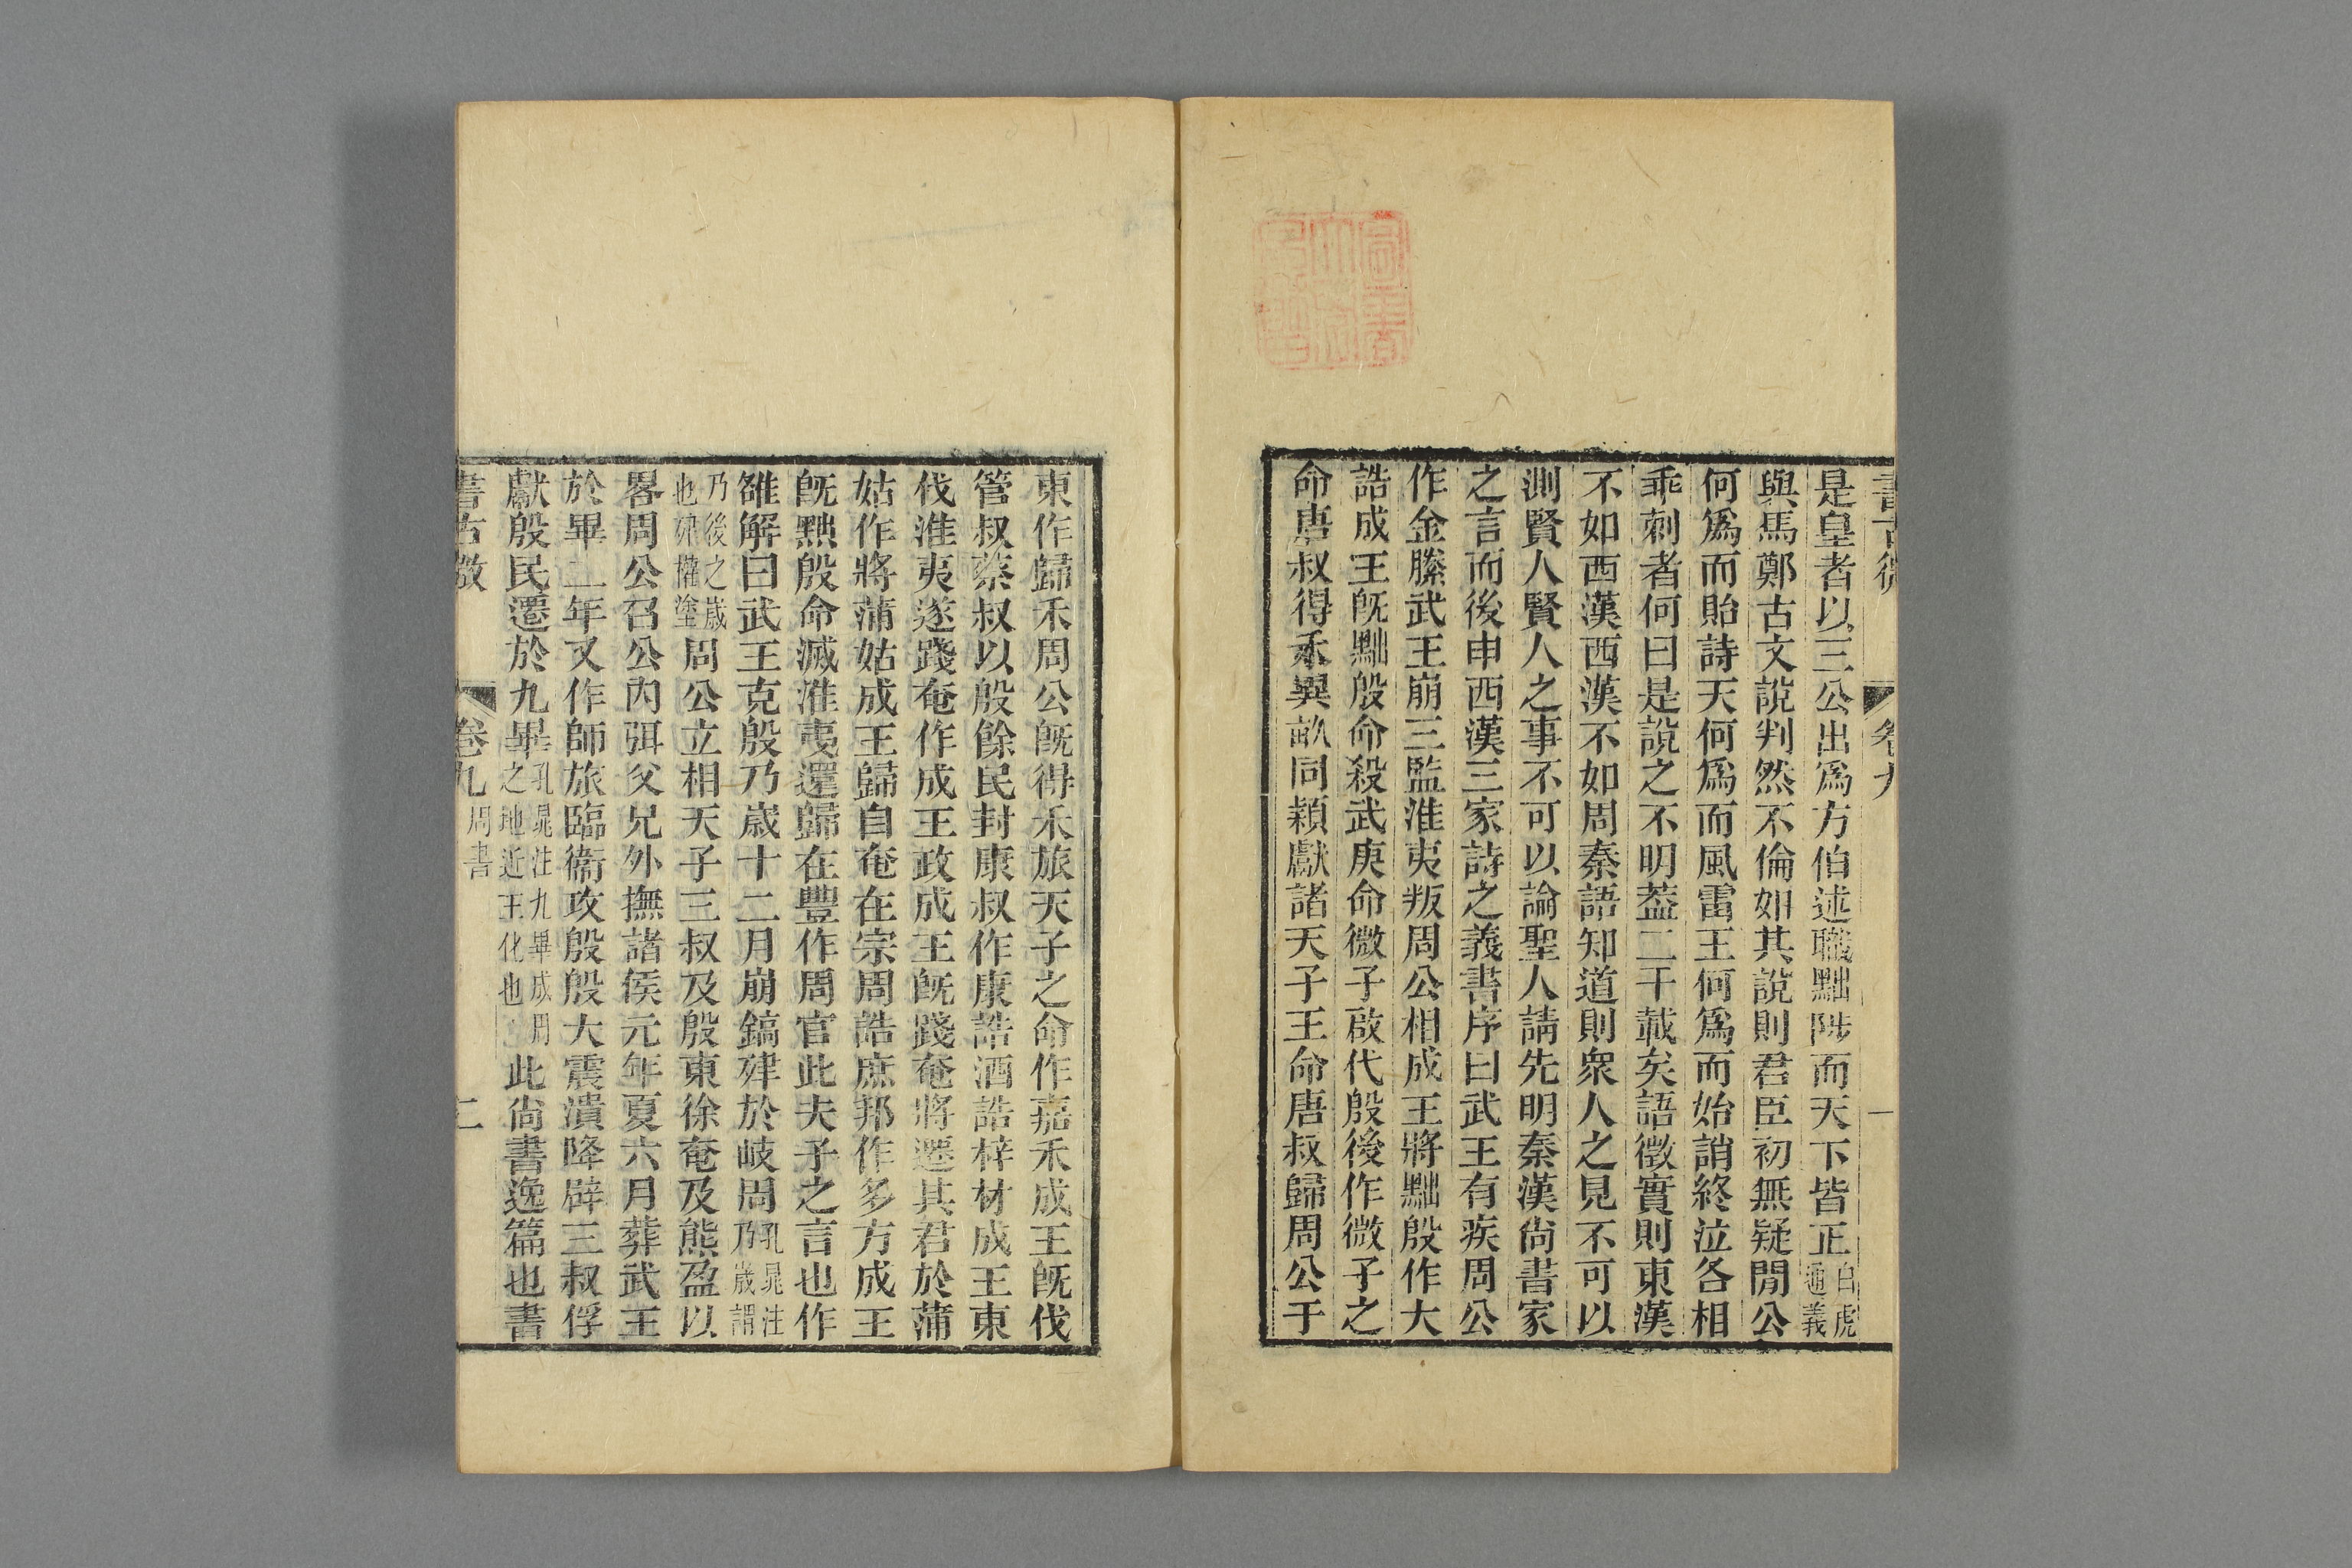 書古微 卷九 一
是皇者以三公出爲方伯述職黜陟而天下皆正白虎通義
與馬鄭古文說判然不倫如其說則君臣初無疑閒公
何爲而貽詩天何爲而風雷王何爲而始誚終泣各相
乖刺者何曰是說之不明葢二千載矣語徵實則東漢
不如西漢西漢不如周秦語知道則衆人之見不可以
測賢人賢人之事不可以論聖人請先明秦漢尙書家
之言而後申西漢三家詩之義書序曰武王有疾周公
作金縢武王崩三監淮夷叛周公相成王將黜殷作大
誥成王旣黜殷命殺武庚命微子啟代殷後作微子之
命唐叔得禾異畝同穎獻諸天子王命唐叔歸周公于
東作歸禾周公旣得禾旅天子之命作嘉禾成王旣伐
管叔蔡叔以殷餘民封康叔作康誥酒誥梓材成王東
伐淮夷遂踐奄作成王政成王旣踐奄將遷其君於蒲
姑作將蒲姑成王歸自奄在宗周誥庶邦作多方成王
旣黜殷命滅淮夷還歸在豐作周官此夫子之言也作
雒解曰武王克殷乃歲十二月崩鎬肂於岐周孔晁注乃歲謂
乃後之歲也肂攢塗周公立相天子三叔及殷東徐奄及熊盈以
畧周公召公內弭父兄外撫諸侯元年夏六月葬武王
於畢二年又作師旅臨衞攻殷殷大震潰降辟三叔俘
獻殷民遷於九畢孔晁注九畢成周之地近王化也此尙書逸篇也書
書古微 卷九 周書 二